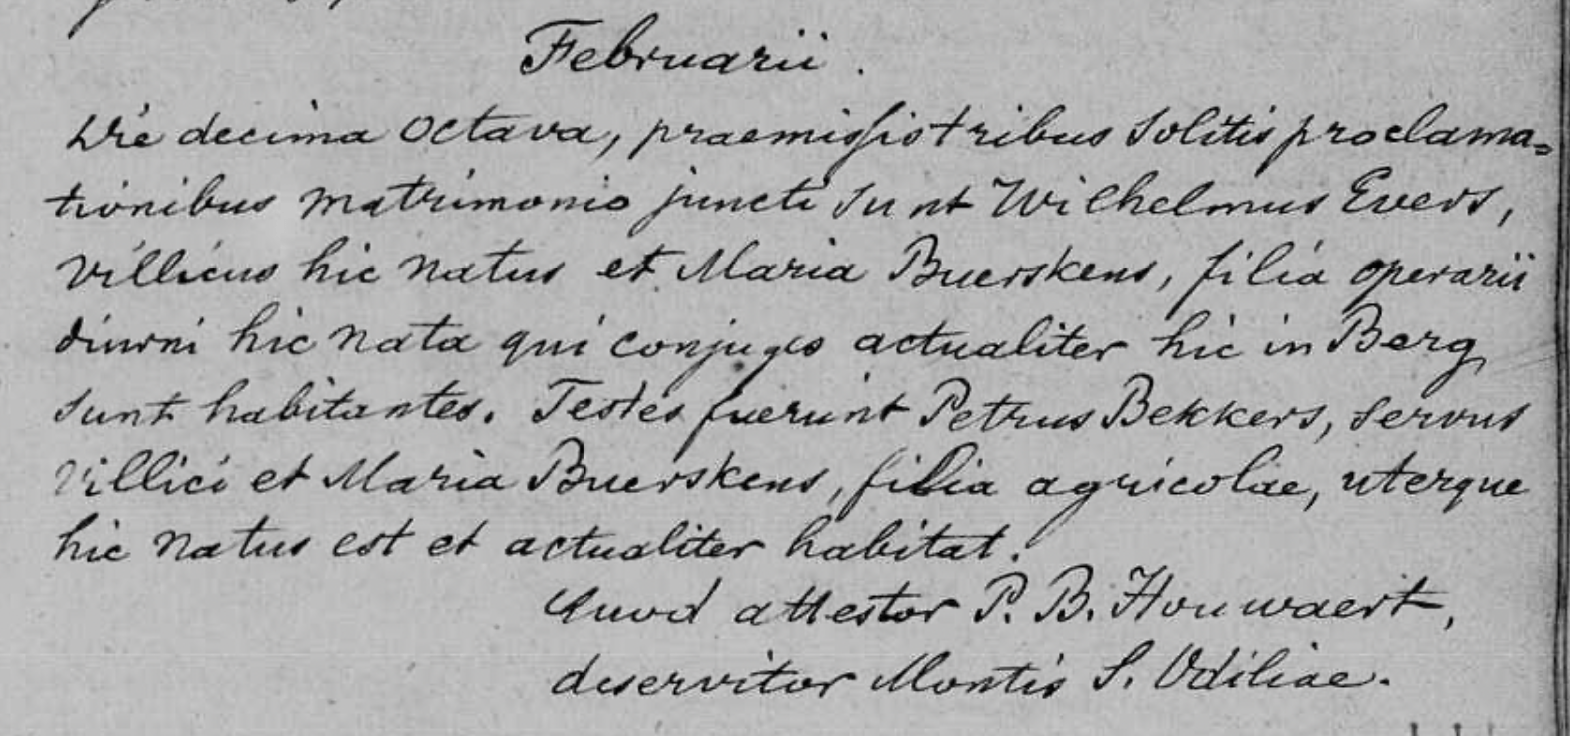 Februarii.
Die decima Octava, praemissis tribus solitis proclama=
tionibus matrimonio juncti sunt Wilhelmus Evers,
villicus hic natus et Maria Buerskens, filia operarii
diurni hic nata qui conjuges actualiter hic in Berg
sunt habitantes. Testes fuerunt Petrus Bekkers, servus
villici et Maria Buerskens, filia agricolae, uterque
hic natus est et actualiter habitat.
Quod attestor P. B. Houwaert,
deservitor Montis S. Odiliae.